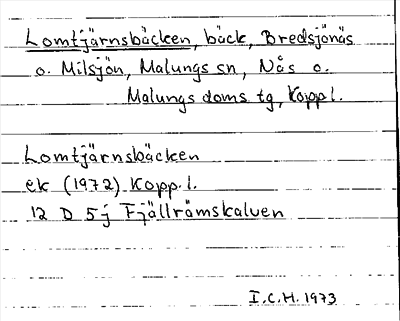 Lomtjärnsbäcken, bäck, Bredsjönäs
o. Milsjön, Malungs sn, Nås o.
Malungs doms tg, Koppl.
Lomtjärnsbäcken
ek (1972) Kopp.l.
12 D 5j Fjällrämskalven
I.C.H. 1973